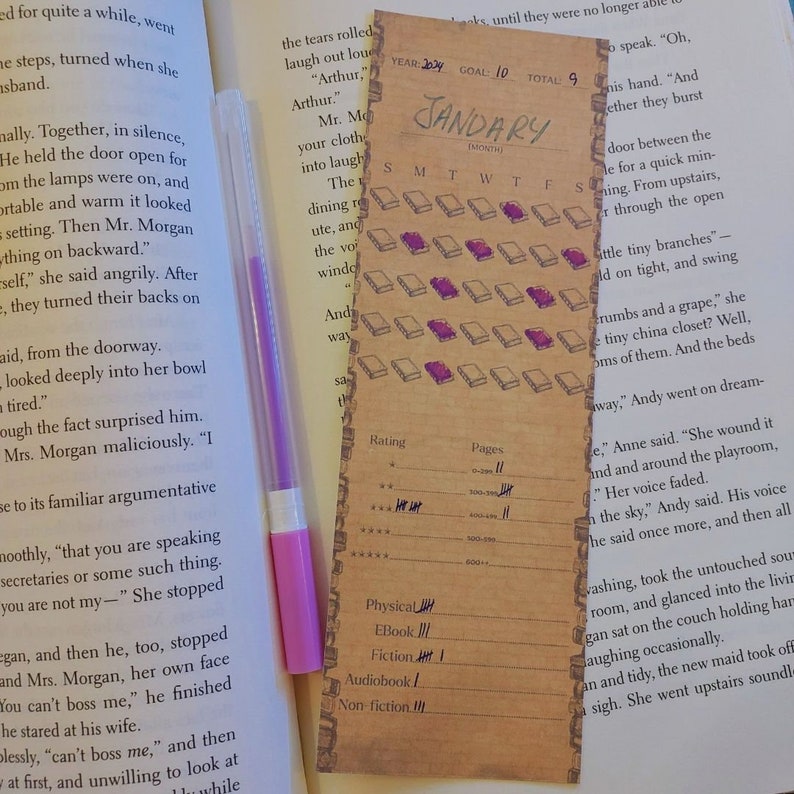 ed for quite a while, went
he steps, turned when she
usband.
nally. Together, in silence,
He held the door open for
om the lamps were on, and
ortable and warm it looked
s setting. Then Mr. Morgan
ything on backward.”
self,” she said angrily. After
e, they turned their backs on
aid, from the doorway.
, looked deeply into her bowl
n tired.”
ough the fact surprised him.
Mrs. Morgan maliciously. “I
se to its familiar argumentative
noothly, “that you are speaking
secretaries or some such thing.
you are not my—” She stopped
egan, and then he, too, stopped
and Mrs. Morgan, her own face
You can’t boss me,” he finished
he stared at his wife.
plessly, “can’t boss me,” and then
y at first, and unwilling to look at
while
YEAR: 2024 GOAL: 10 TOTAL: 9
JANUARY
(MONTH)
S M T W T F S
Rating Pages
★
★★
★★★ 卌 卌
★★★★
★★★★★
0-299 ||
300-399 卌
400-499 ||
500-599
600++
Physical 卌
EBook |||
Fiction 卌 |
Audiobook |
Non-fiction |||
until they were no longer able to
the tears rolled
laugh out lou
o speak. “Oh,
“Arthur,”
his hand. “And
Arthur.”
ether they burst
Mr. Mo
your cloth
door between the
into laugh
le for a quick min-
The
ning. From upstairs,
dining ro
r through the open
ute, and
the voi
little tiny branches”—
windo
ld on tight, and swing
And
crumbs and a grape,” she
way
e tiny china closet? Well,
oms of them. And the beds
sa
way,” Andy went on dream-
e,” Anne said. “She wound it
nd and around the playroom,
.” Her voice faded.
n the sky,” Andy said. His voice
he said once more, and then all
washing, took the untouched sou
room, and glanced into the livin
gan sat on the couch holding han
aughing occasionally.
n and tidy, the new maid took off
sigh. She went upstairs soundle